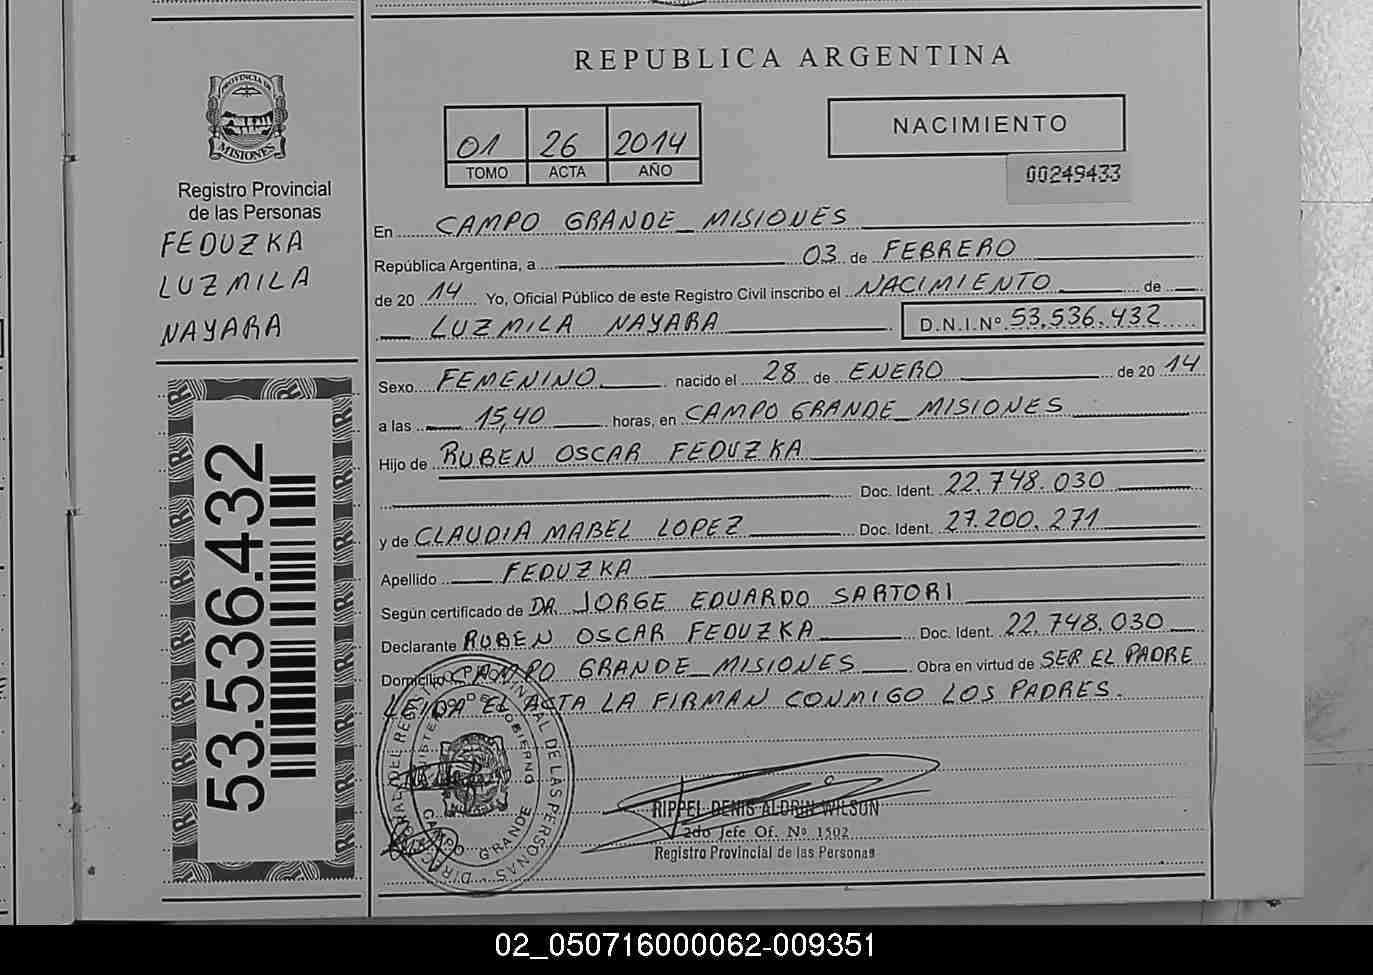 REPUBLICA ARGENTINA
PROVINCIA DE
MISIONES
Registro Provincial
de las Personas
FEDUZKA
LUZMILA
NAYARA
53.536.432
01 26 2014
TOMO ACTA AÑO
NACIMIENTO
00249433
En CAMPO GRANDE_ MISIONES
República Argentina, a 03 de FEBRERO
de 2014 Yo, Oficial Público de este Registro Civil inscribo el NACIMIENTO de
LUZMILA NAYARA D.N.I.Nº 53.536.432
Sexo FEMENINO nacido el 28 de ENERO de 2014
a las 15,40 horas, en CAMPO GRANDE_ MISIONES
Hijo de RUBEN OSCAR FEDUZKA
Doc. Ident. 22.748.030
y de CLAUDIA MABEL LOPEZ Doc. Ident. 27.200.271
Apellido FEDUZKA
Según certificado de DR. JORGE EDUARDO SARTORI
Declarante RUBEN OSCAR FEDUZKA Doc. Ident. 22.748.030
Domicilio CAMPO GRANDE_ MISIONES Obra en virtud de SER EL PADRE
LEIDA EL ACTA LA FIRMAN CONMIGO LOS PADRES.
DIRAC. GRAL. DEL REGISTRO PROVINCIAL DE LAS PERSONAS
MINISTERIO DE GOBIERNO
CAMPO GRANDE
RIPPEL DENIS ALDRIN WILSON
2do Jefe Of. Nº 1502
Registro Provincial de las Personas
02_050716000062-009351